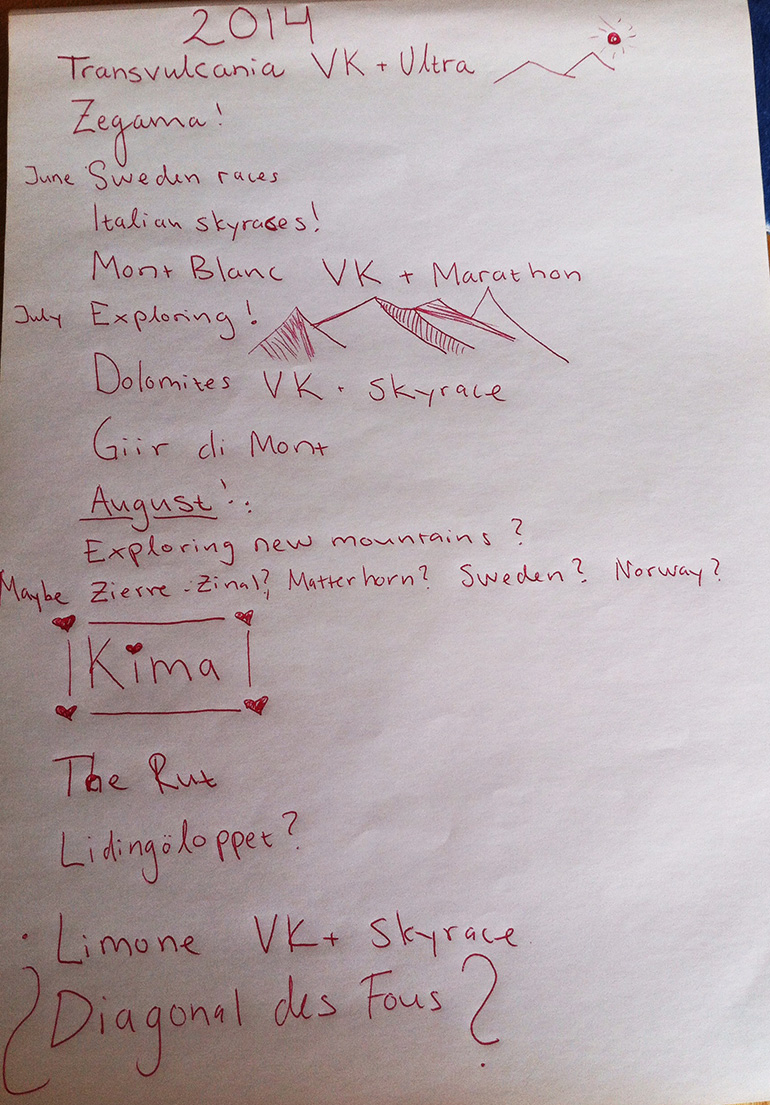 2014
Transvulcania VK + Ultra
Zegama!
June Sweden races
Italian skyraces!
Mont Blanc VK + Marathon
July Exploring!
Dolomites VK + Skyrace
Giir di Mont
August!
Exploring new mountains?
Maybe Zierre-Zinal?, Matterhorn? Sweden? Norway?
Kima
The Rut
Lidingöloppet?
Limone VK + Skyrace
¿Diagonal des Fous?